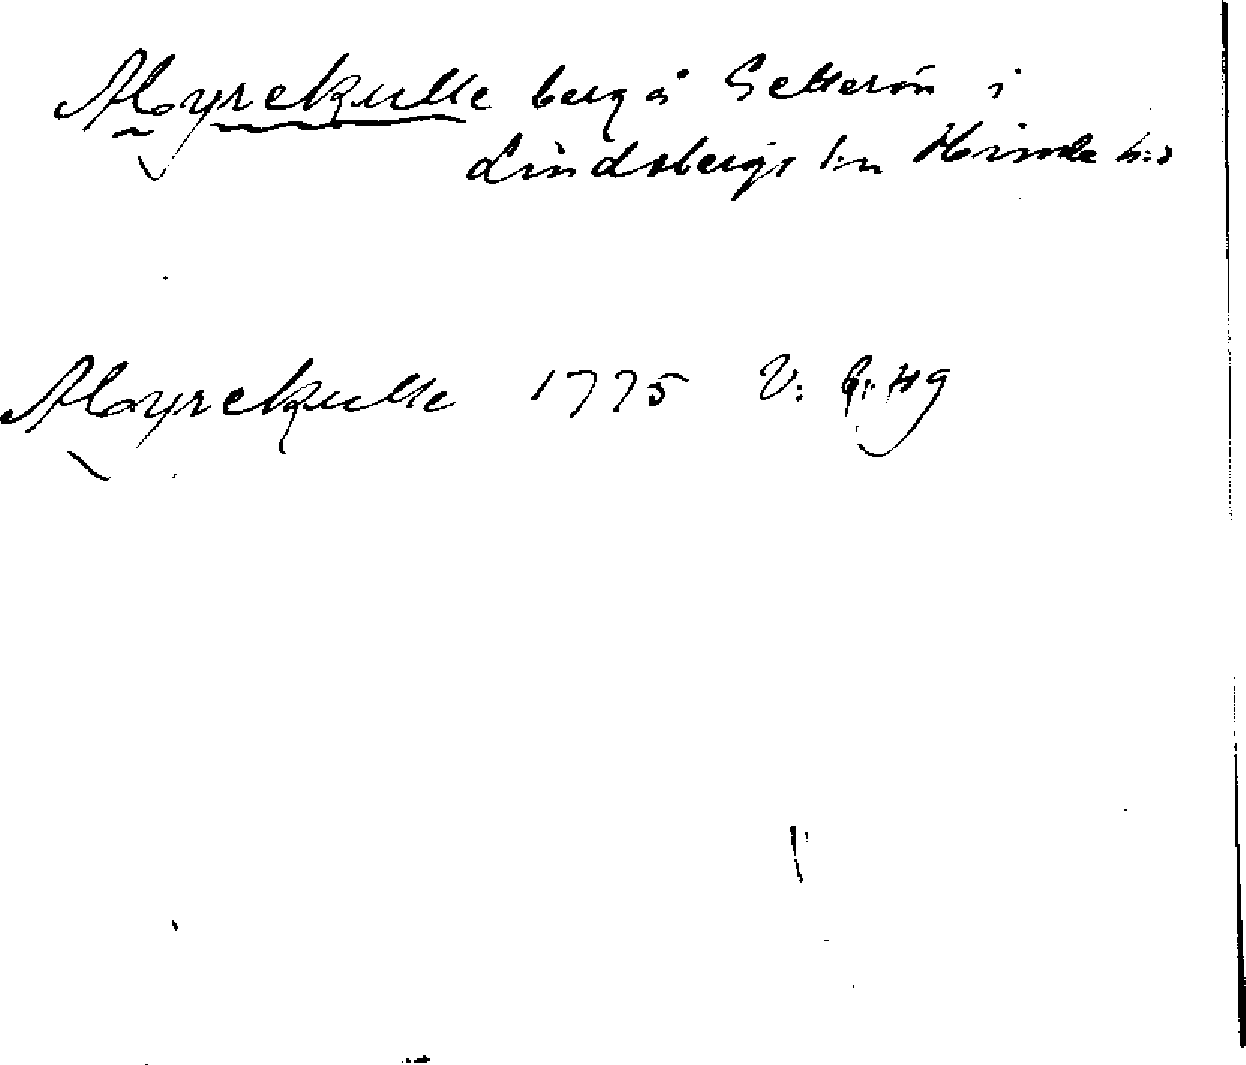 Moyrekulle berg å Getterön i
Lindbergs sn Himle hd
Moyrekulle 1775 V: